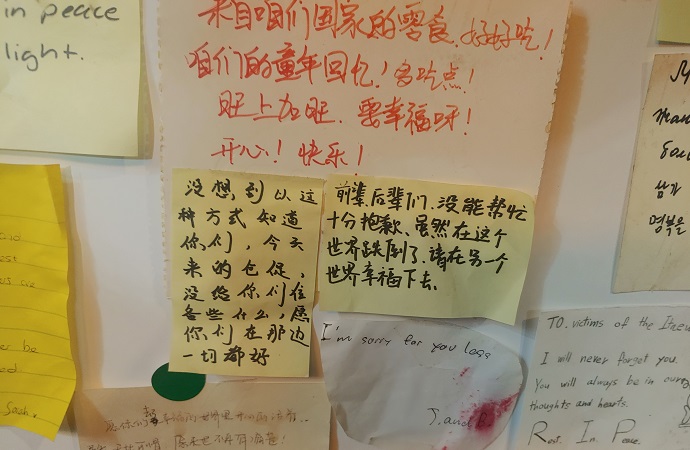 in peace
light.
来自咱们国家的零食.好好吃!
咱们的童年回忆!多吃点!
旺上加旺.要幸福呀!
开心!快乐!
没想到以这
种方式知道
你们,今天
来的仓促,
没给你们准
备些什么,愿
你们在那边
一切都好
前辈,后辈们.没能帮忙
十分抱歉、虽然在这个
世界跌倒了.请在另一个
世界幸福下去.
I'm sorry for you loss
J. and
TO. victims of the
I will never forget you.
You will always be in our
thoughts and hearts.
Rest. In. Peace.
삼가
명복을
be
such.